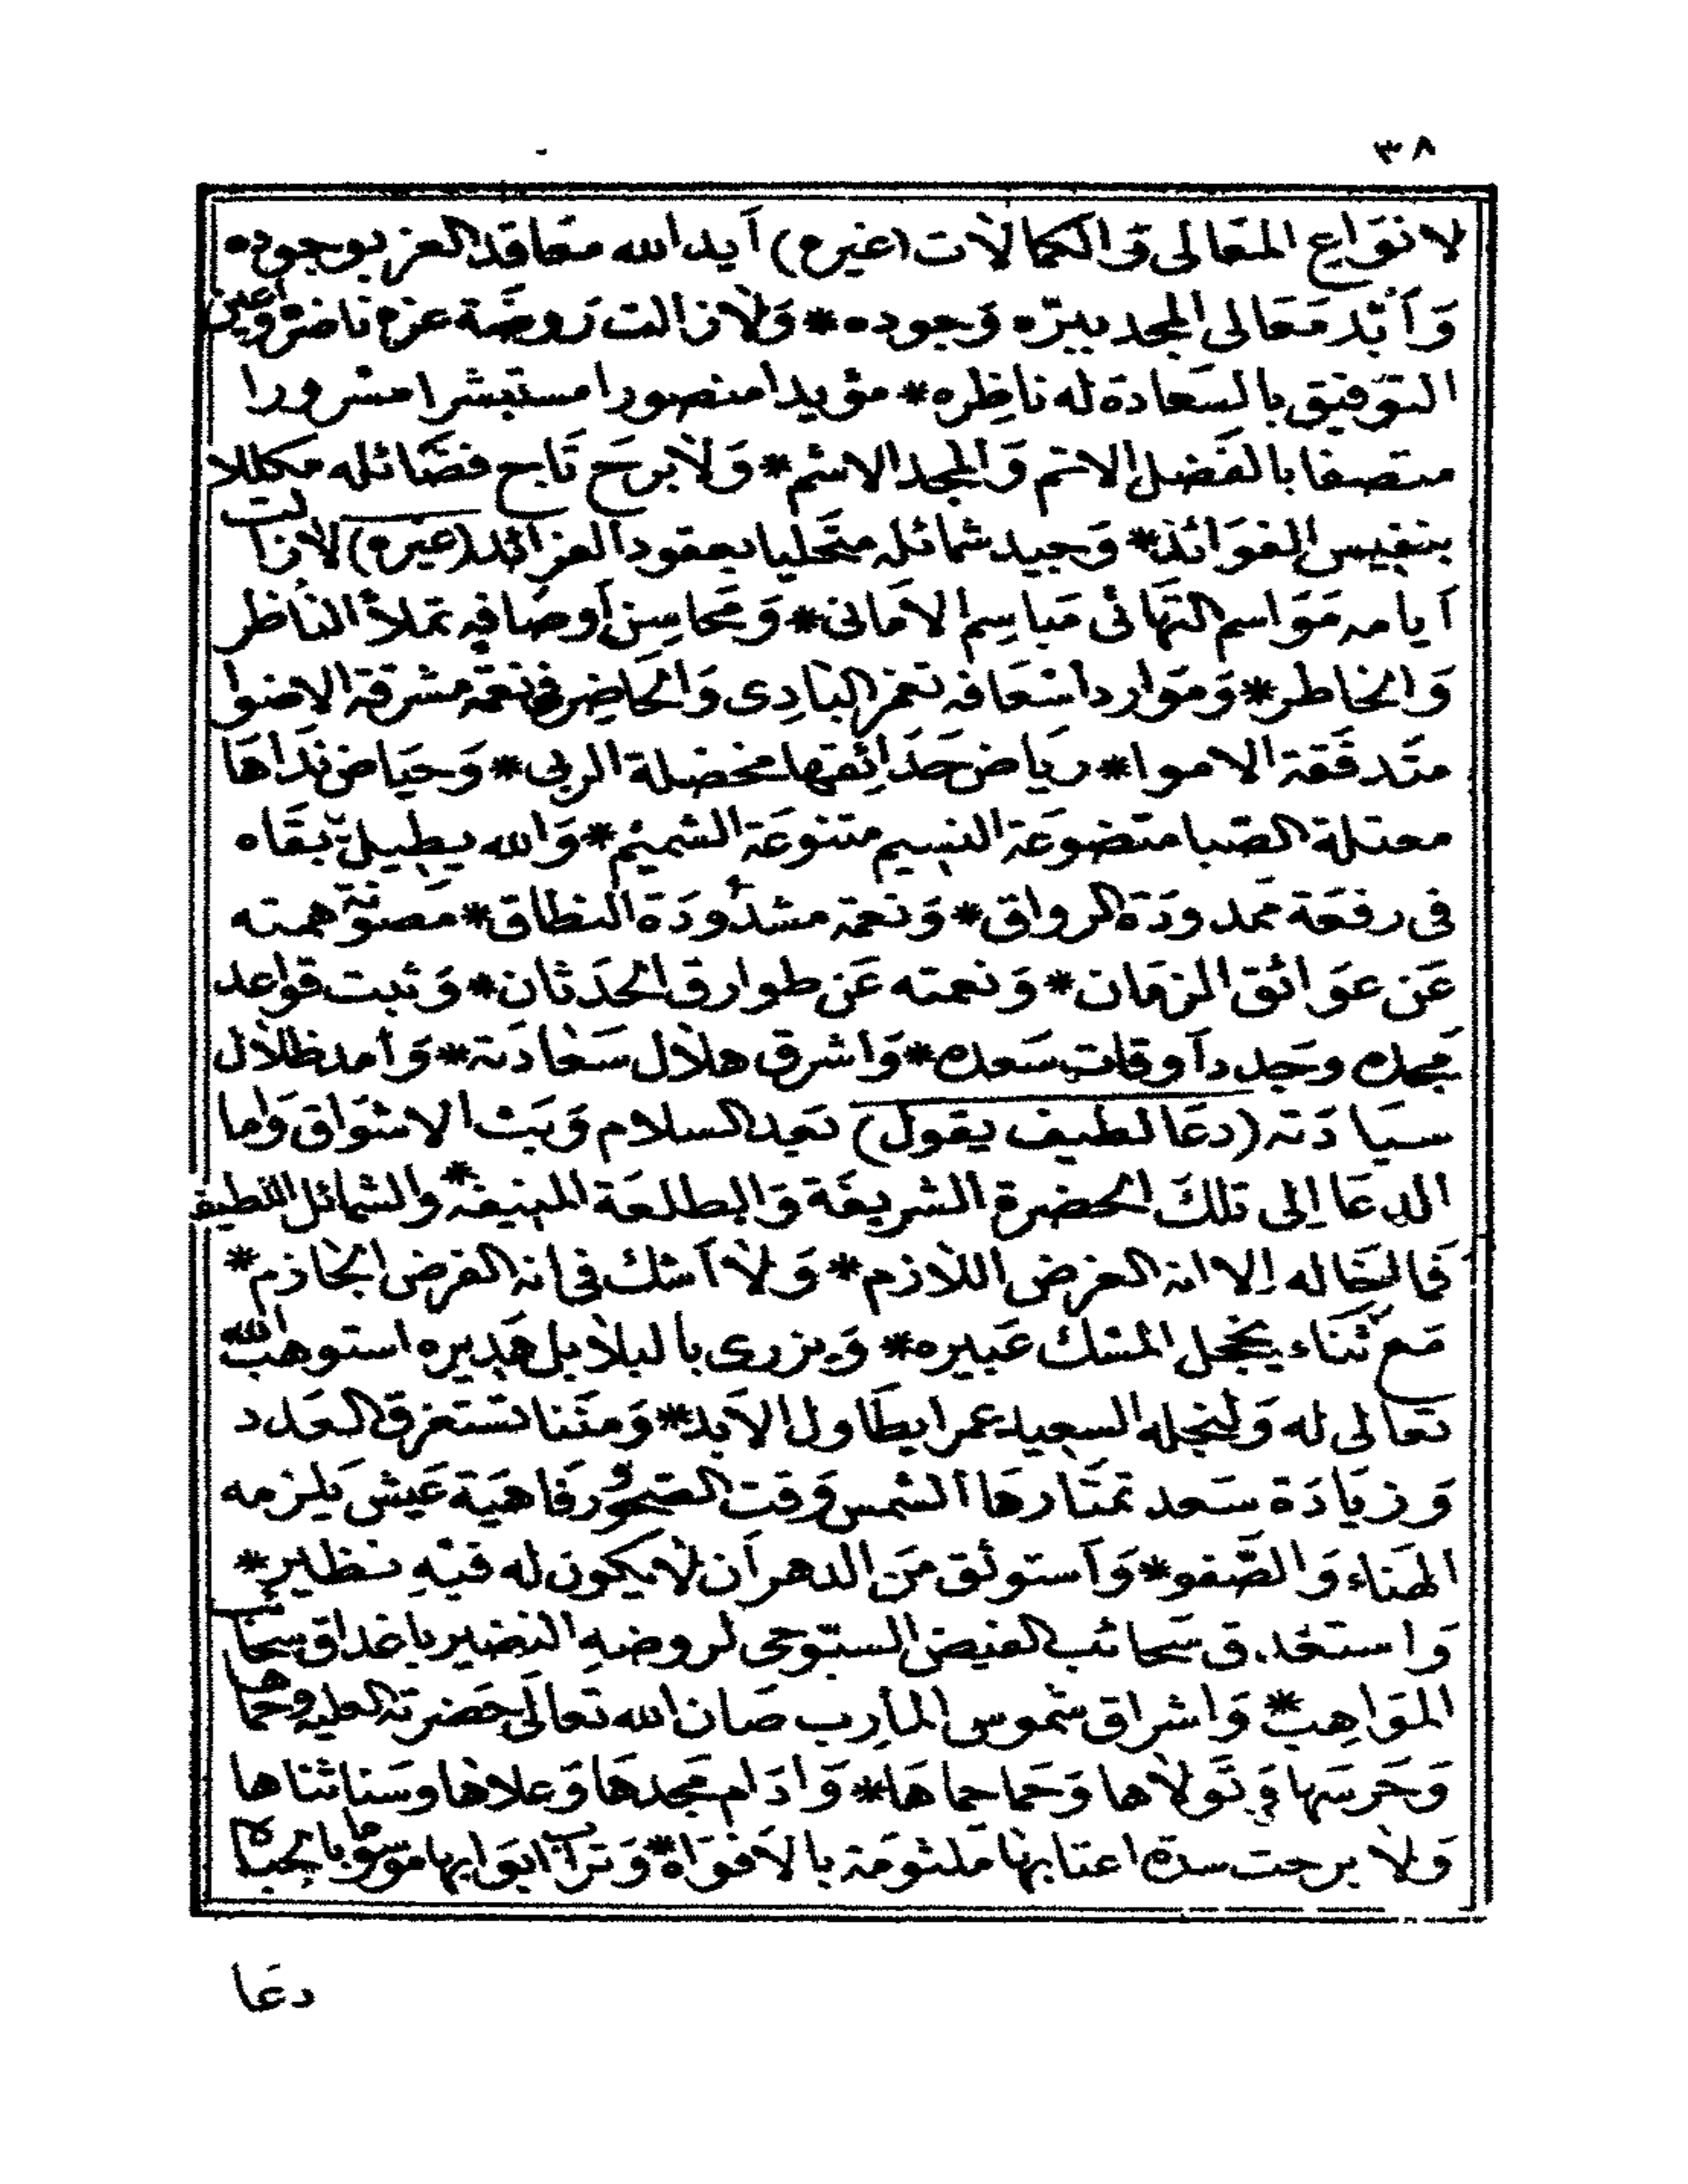 ٣٨
لانواع المعالى والكمالات (غيره) أيد الله معاقد العز بوجوده
وأبّد معالى المجد ببرّه وجوده * ولا زالت روضة عزه ناضرة وأعين
التوفيق بالسعادة له ناظره * مؤيدا منصورا مستبشرا مسرورا
متصفا بالفضل الاتم والمجد الاشم * ولا برح تاج فضائله مكللا
بنفيس الفوائد * وجيد شمائله متحليا بعقود الفرائد (غيره) لازالت
أيامه مواسم التهانى مباسم الامانى * ومحاسن أوصافه تملأ الناظر
والخاطر * وموارد اسعافه تغمر البادى والحاضر فى نعمة مشرقة الاضوا
متدفقة الاموا * رياض حدائقها مخضلة الربى * وحياض نداها
معتلة الصبا متضوعة النسيم متنوعة الشميم * والله يطيل بقاه
فى رفعة ممدودة الرواق * ونعمة مشدودة النطاق * مصونة همته
عن عوائق الزمان * ونعمته عن طوارق الحدثان * وثبت قواعد
مجده وجدد أوقات سعده * واشرق هلال سعادته * وأمد ظلال
سيادته (دعا لطيف يقول) بعد السلام وبث الاشواق واما
الدعا الى تلك الحضرة الشريفة والطلعة المنيفة * والشمائل اللطيفه
فما لنخاله الا انه الفرض اللازم * ولا أشك فى انه الفرض الجازم *
مع ثناء يخجل المسك عبيره * ويزرى بالبلابل هديره استوهب الله
تعالى له ولنجله السعيد عمرا يطاول الابد * ومننا تستغرق العدد
وزيادة سعد تمتارها الشمس وقت الصحو ورفاهية عيش يلزمه
الهناء والصفو * وأستوثق من الدهر أن لا يكون له فيه نظير *
واستغدق سحائب الفيض السبّوحى لروضه النضير باغداق سحائب
المواهب * واشراق شموس المأرب صان الله تعالى حضرته العليه وحماها
وحرسها وتولاها وحما حماها * وادام مجدها وعلاها وسنا ثناها
ولا برحت سدة اعتابها ملثومة بالافواه * وتراب ابوابها موسوما بالجباه
دعا